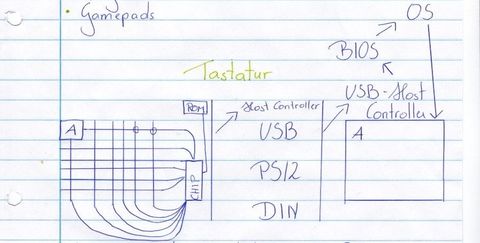 • Gamepads
OS
BIOS
Tastatur
USB-Host
Controller
ROM
Host Controller
A
USB
A
CHIP
PS/2
DIN